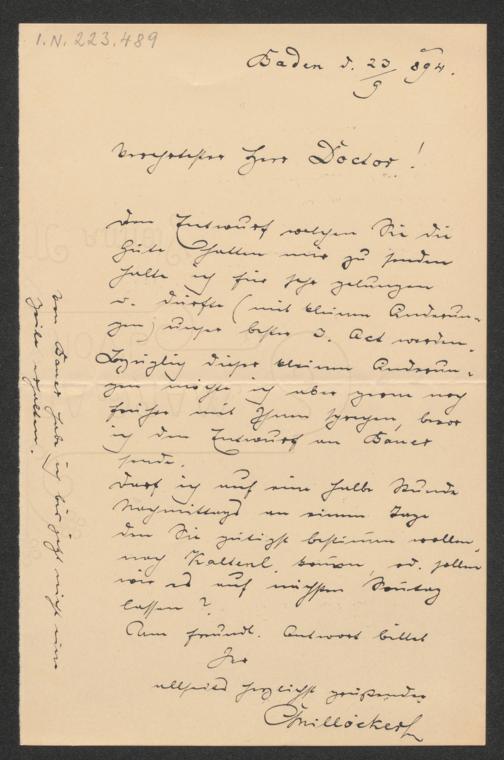 I.N. 223.489
Baden d. 23/9 894.
Verehrtester Herr Doctor!
Den Entwurf welchen Sie die
Güte hatten mir zu senden
halte ich für sehr gelungen
u. dürfte (mit kleinen Änderun-
gen) unser bester 3. Act werden.
Bezüglich dieser kleinen Änderun-
gen möchte ich aber gerne noch
früher mit Ihnen sprechen, bevor
ich den Entwurf an Bauer
sende.
Darf ich auf eine halbe Stunde
Nachmittags an einem Tage
den Sie gütigst bestimmen wollen,
nach Kaltenl. kommen, od. sollen
wir es auf nächsten Sonntag
lassen?
Um freundl. Antwort bittet
Ihr
allseits herzlichst grüßender
CMillöcker
Von Bauer habe ich bis jetzt nicht eine
Zeile erhalten.